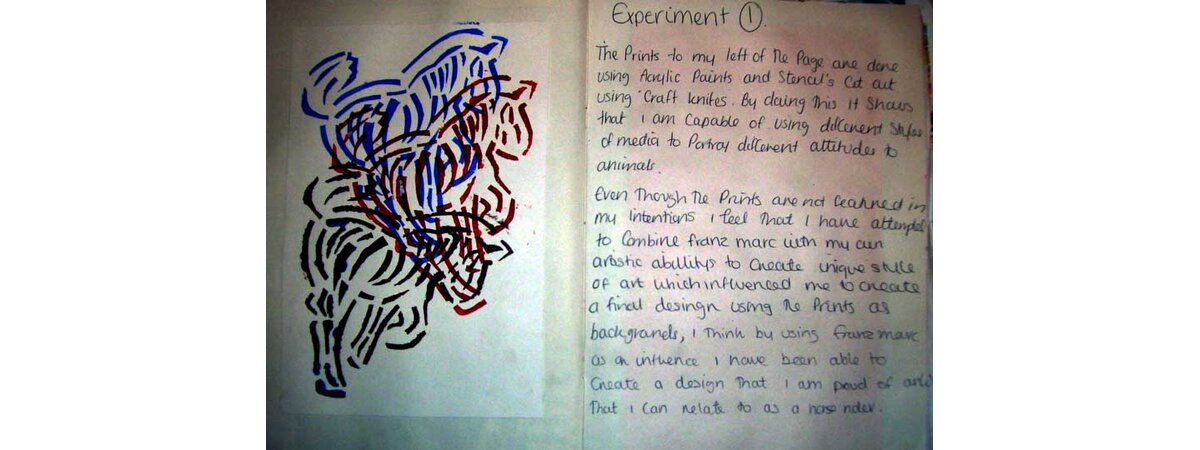 Experiment ①.
The Prints to my left of The Page are done
using Acrylic Paints and Stencil's Cut out
using Craft knifes. By doing This It Shows
that I am Capable of using different Styles
of media to Portray different attitudes to
animals.
Even Though The Prints are not learned in
my Intentions I feel That I have attempted
to Combine franz marc with my own
artistic abillitys to Create unique style
of art which influenced me to create
a final desingn using The Prints as
backgranels, I Think by using franz marc
as an influence I have been able to
Create a design That I am proud of and
That I Can relate to as a horse rider.